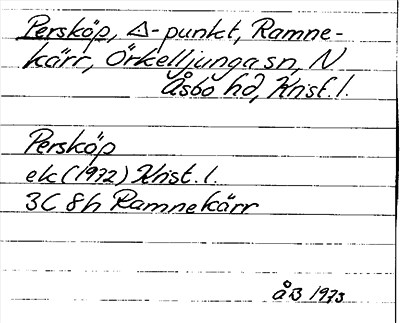 Persköp, △-punkt, Ramne-
kärr, Örkelljunga sn, N
Åsbo hd, Krist. l.
Persköp
ek (1972) Krist. l.
3C 8h Ramnekärr
åB 1973